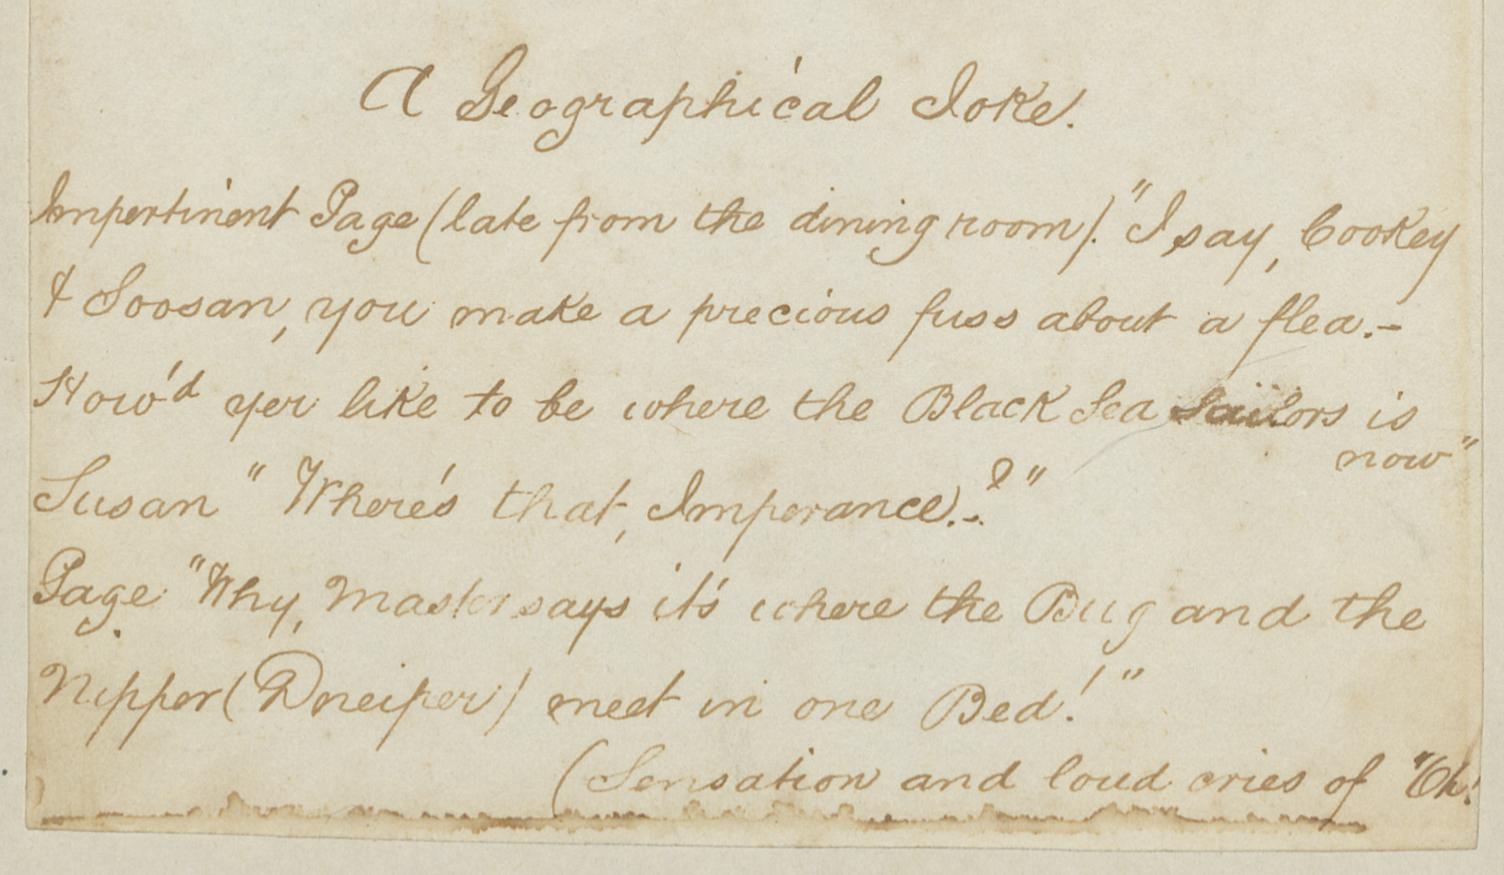 A Geographical Joke.
Impertinent Page (late from the dining room). "I say, Cookey
& Soosan, you make a precious fuss about a flea.-
How'd yer like to be where the Black Sea sailors is
now"
Susan "Where's that, Imperance.-?"
Page "Why, Master says it's where the Bug and the
Nipper (Dneiper) meet in one Bed!"
(Sensation and loud cries of "Oh!